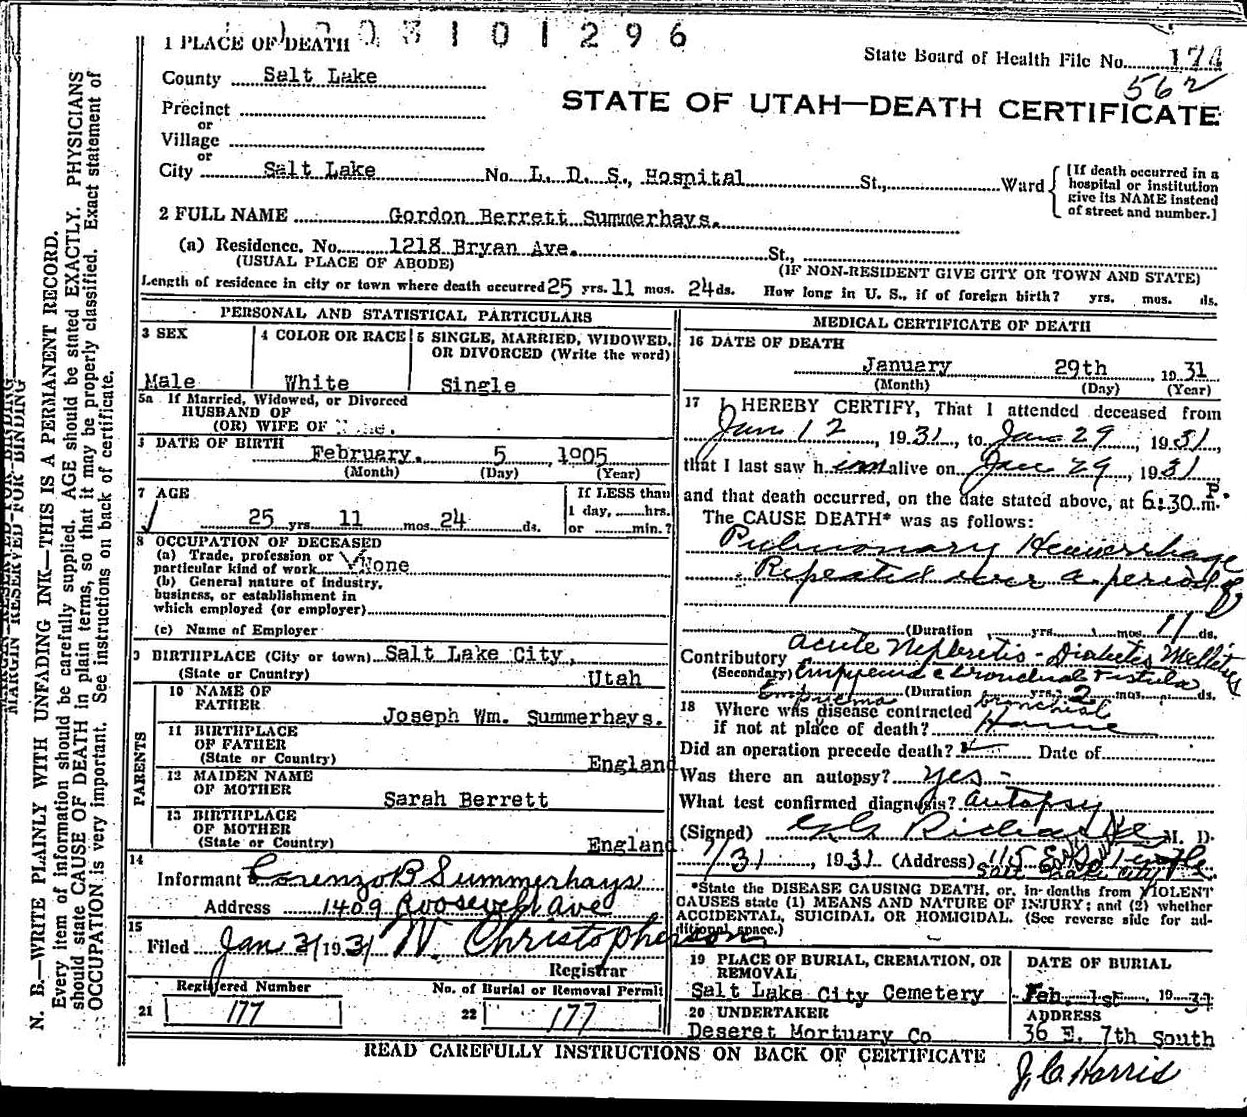 3101296
1 PLACE OF DEATH
State Board of Health File No. 174
562
County Salt Lake
STATE OF UTAH—DEATH CERTIFICATE
Precinct
or
Village
or
City Salt Lake No. L. D. S., Hospital St., Ward
[If death occurred in a hospital or institution give its NAME instead of street and number.]
2 FULL NAME Gordon Berrett Summerhays.
(a) Residence. No. 1218 Bryan Ave. St.,
(USUAL PLACE OF ABODE) (IF NON-RESIDENT GIVE CITY OR TOWN AND STATE)
Length of residence in city or town where death occurred 25 yrs. 11 mos. 24 ds. How long in U. S., if of foreign birth? yrs. mos. ds.
PERSONAL AND STATISTICAL PARTICULARS
3 SEX
Male
4 COLOR OR RACE
White
5 SINGLE, MARRIED, WIDOWED, OR DIVORCED (Write the word)
Single
5a If Married, Widowed, or Divorced
HUSBAND OF
(OR) WIFE OF
DATE OF BIRTH
February. 5, 1905
(Month) (Day) (Year)
7 AGE
25 yrs 11 mos. 24 ds.
If LESS than
1 day, hrs.
or min.?
8 OCCUPATION OF DECEASED
(a) Trade, profession or
particular kind of work None
(b) General nature of Industry,
business, or establishment in
which employed (or employer)
(c) Name of Employer
9 BIRTHPLACE (City or town) Salt Lake City,
(State or Country) Utah
PARENTS
10 NAME OF
FATHER Joseph Wm. Summerhays.
11 BIRTHPLACE
OF FATHER
(State or Country) England
12 MAIDEN NAME
OF MOTHER Sarah Berrett
13 BIRTHPLACE
OF MOTHER
(State or Country) England
14
Informant Lorenzo B Summerhays
Address 1409 Roosevelt Ave
15
Filed Jan 31 1931 W. Christopherson
Registrar
Registered Number
21 177
No. of Burial or Removal Permit
22 177
MEDICAL CERTIFICATE OF DEATH
16 DATE OF DEATH
January 29th, 1931
(Month) (Day) (Year)
17 I HEREBY CERTIFY, That I attended deceased from
Jan 12, 1931, to Jan 29, 1931,
that I last saw him alive on Jan 29, 1931
and that death occurred, on the date stated above, at 6:30 P m.
The CAUSE DEATH* was as follows:
Pulmonary Hemorrhage
Repeated over a period of
(Duration yrs. mos. 11 ds.
Contributory Acute Nephritis - Diabetes Mellitus
(Secondary) Empyema c Bronchial Fistula
Empyema (Duration yrs. 2 mos. ds.
bronchial
18 Where was disease contracted
if not at place of death? Home
Did an operation precede death? Date of
Was there an autopsy? yes -
What test confirmed diagnosis? autopsy
(Signed) Richards M. D.
1/31, 1931 (Address) 115 E So Temple
Salt Lake City
*State the DISEASE CAUSING DEATH, or, in deaths from VIOLENT
CAUSES state (1) MEANS AND NATURE OF INJURY; and (2) whether
ACCIDENTAL, SUICIDAL OR HOMICIDAL. (See reverse side for ad-
ditional space.)
19 PLACE OF BURIAL, CREMATION, OR
REMOVAL
Salt Lake City Cemetery
DATE OF BURIAL
Feb. 1st, 1931
20 UNDERTAKER
Deseret Mortuary Co
ADDRESS
36 E. 7th South
READ CAREFULLY INSTRUCTIONS ON BACK OF CERTIFICATE
J. C. Harris
MARGIN RESERVED FOR BINDING
N. B.—WRITE PLAINLY WITH UNFADING INK—THIS IS A PERMANENT RECORD.
Every item of information should be carefully supplied. AGE should be stated EXACTLY. PHYSICIANS
should state CAUSE OF DEATH in plain terms, so that it may be properly classified. Exact statement of
OCCUPATION is very important. See instructions on back of certificate.